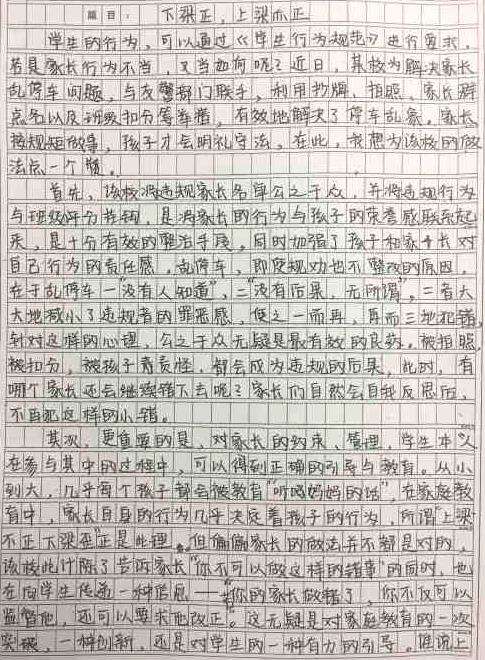 题目：下梁正，上梁亦正
学生的行为，可以通过《学生行为规范》进行要求，
若是家长行为不当，又当如何呢？近日，某校为解决家长
乱停车问题，与交警部门联手，利用抄牌、拍照、家长群
点名以及班级扣分等举措，有效地解决了停车乱象。家长
按规矩做事，孩子才会明礼守法，在此，我想为该校的做
法点一个赞。
首先，该校将违规家长名单公之于众，并将违规行为
与班级评分挂钩，是将家长的行为与孩子的荣誉感联系起
来，是十分有效的整治手段，同时加强了孩子和家长对
自己行为的责任感。乱停车，即使规劝也不整改的原因，
在于乱停车一“没有人知道”，二“没有后果，无所谓”，二者大
大地减小了违规者的罪恶感，使之一而再，再而三地犯错，
针对这样的心理，公之于众无疑是最有效的良药。被拍照，
被扣分，被孩子责怪，都会成为违规的后果，此时，有
哪个家长还会继续错下去呢？家长们自然会自我反思后，
不再犯这样的小错。
其次，更重要的是，对家长的约束、管理，学生本人
在参与其中的过程中，可以得到正确的引导与教育。从小
到大，几乎每个孩子都会被教育“听爸妈妈的话”，在家庭教
育中，家长自身的行为几乎决定着孩子的行为，所谓“上梁
不正下梁歪”正是此理。但偏偏家长的做法并不都是对的，
该校此计除了告诉家长“你不可以做这样的错事”的同时，也
在向学生传递一种信息——“你的家长做错了，你不仅可以
监督他，还可以要求他改正。”这无疑是对家庭教育的一次
突破，一种创新，还是对学生的一种有力的引导。谁说上